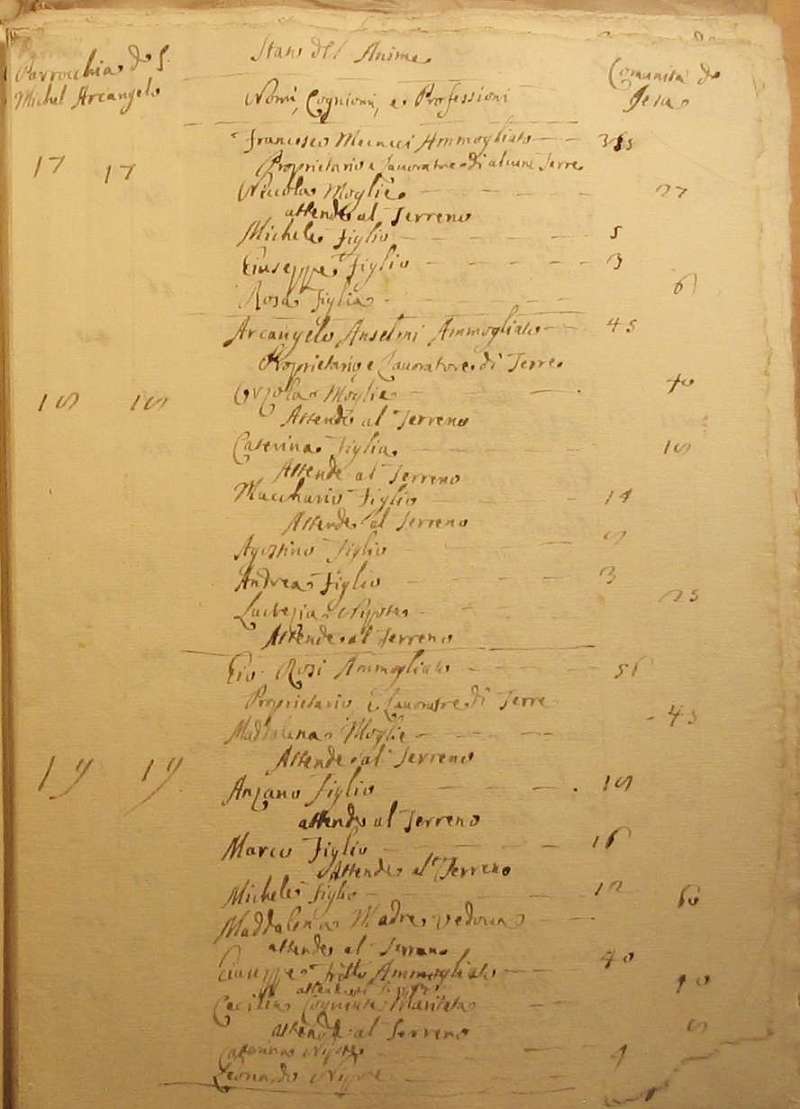 Parrocchia di S. Stato dell' Anime Comunità di
Michel Arcangelo Nomi, Cognomi, e Professioni Jesa
17 17 Francesco Ammogliato 35
Proprietario e Lavoratore di alcune Terre
Niccola Moglie 27
attende al Terreno
Michele Figlio 5
Giuseppe Figlio 3
Rosa Figlia 6
Arcangelo Anselmi Ammogliato 45
Proprietario e Lavoratore di Terre
18 18 Orzola Moglie 40
Attende al Terreno
Caterina Figlia 18
Attende al Terreno
Macchario Figlio 14
Attende al Terreno
Agostino Figlio 8
Andrea Figlio 3
Lucrezia Nipote 25
Attende al Terreno
Gio: Rosi Ammogliato 56
Proprietario e Lavoratore di Terre
Maddalena Moglie 45
Attende al Terreno
19 19 Anzano Figlio 18
attende al Terreno
Marco Figlio 16
Attende al Terreno
Michele Figlio 12
Maddalena Madre vedova 60
attende al Terreno
Giuseppe Ammogliato 40
Cecilia Cognata Maritata 40
attende al Terreno
Caterina Nipote 8
Leonardo Nipote 4